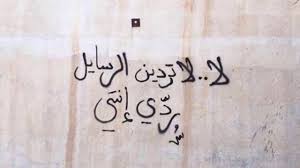 لا .. لا تردين الرسايل
ردّي إنتي